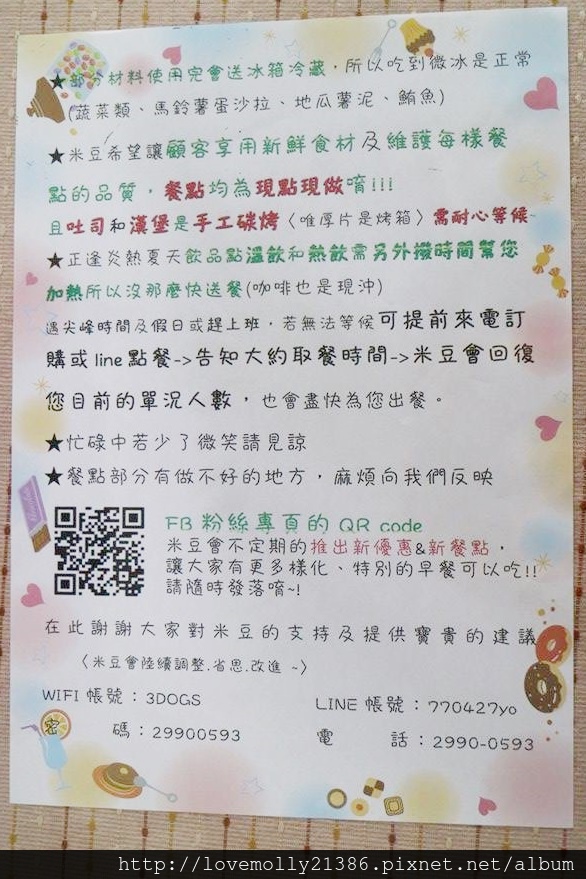 ★部分材料使用完會送冰箱冷藏，所以吃到微冰是正常
(蔬菜類、馬鈴薯蛋沙拉、地瓜薯泥、鮪魚)
★米豆希望讓顧客享用新鮮食材及維護每樣餐
點的品質，餐點均為現點現做唷!!!
且吐司和漢堡是手工碳烤〈唯厚片是烤箱〉需耐心等候~
★正逢炎熱夏天飲品點溫飲和熱飲需另外撥時間幫您
加熱所以沒那麼快送餐(咖啡也是現沖)
遇尖峰時間及假日或趕上班，若無法等候可提前來電訂
購或line點餐->告知大約取餐時間->米豆會回復
您目前的單況人數，也會盡快為您出餐。
★忙碌中若少了微笑請見諒
★餐點部分有做不好的地方，麻煩向我們反映
FB粉絲專頁的QR code
米豆會不定期的推出新優惠&新餐點，
讓大家有更多樣化、特別的早餐可以吃!!
請隨時發落唷~!
在此謝謝大家對米豆的支持及提供寶貴的建議
〈米豆會陸續調整.省思.改進 ~〉
WIFI 帳號：3DOGS
密 碼：29900593
LINE 帳號：770427yo
電 話：2990-0593
http://lovemolly21386.pixnet.net/album